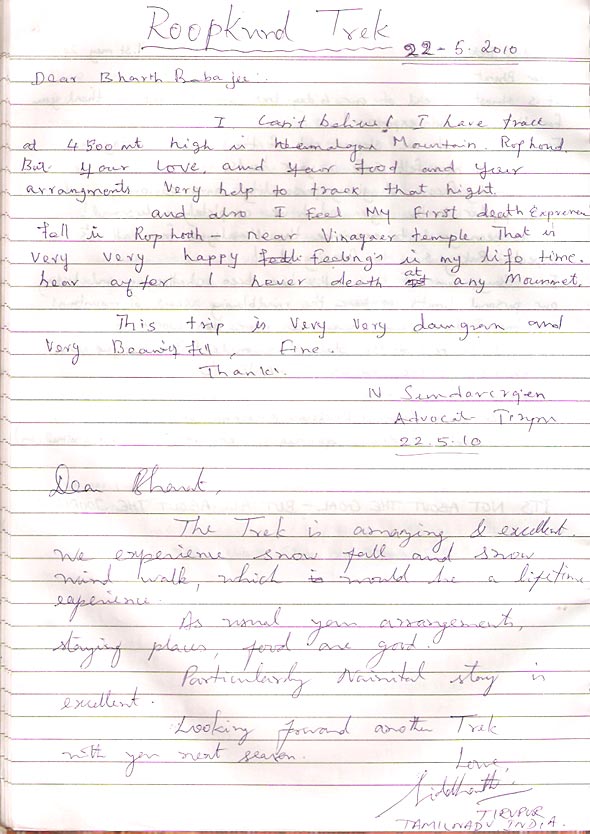 Roopkund Trek
22-5.2010
Dear Bharth Babajee.
I can't believe! I have track
at 4500 mt high in Mountain.
But your love, and your food and your
arrangments very help to track that hight.
and also I feel My First death
fell in near temple. That is
very very happy feelings in my life time.
hear after I never death at any
This trip is very very and
very fine.
Thanks.
N
Advocate
22.5.10
Dear Bharat,
The Trek is amazing & excellent.
We experience snow fall and snow
wind walk, which would be a lifetime
experience.
As usual your arrangements,
staying places, food are good.
Particularly Nainital stay is
excellent.
Looking forward another Trek
with you next season.
Love,
Siddharth
TIRUPUR
TAMILNADU INDIA.